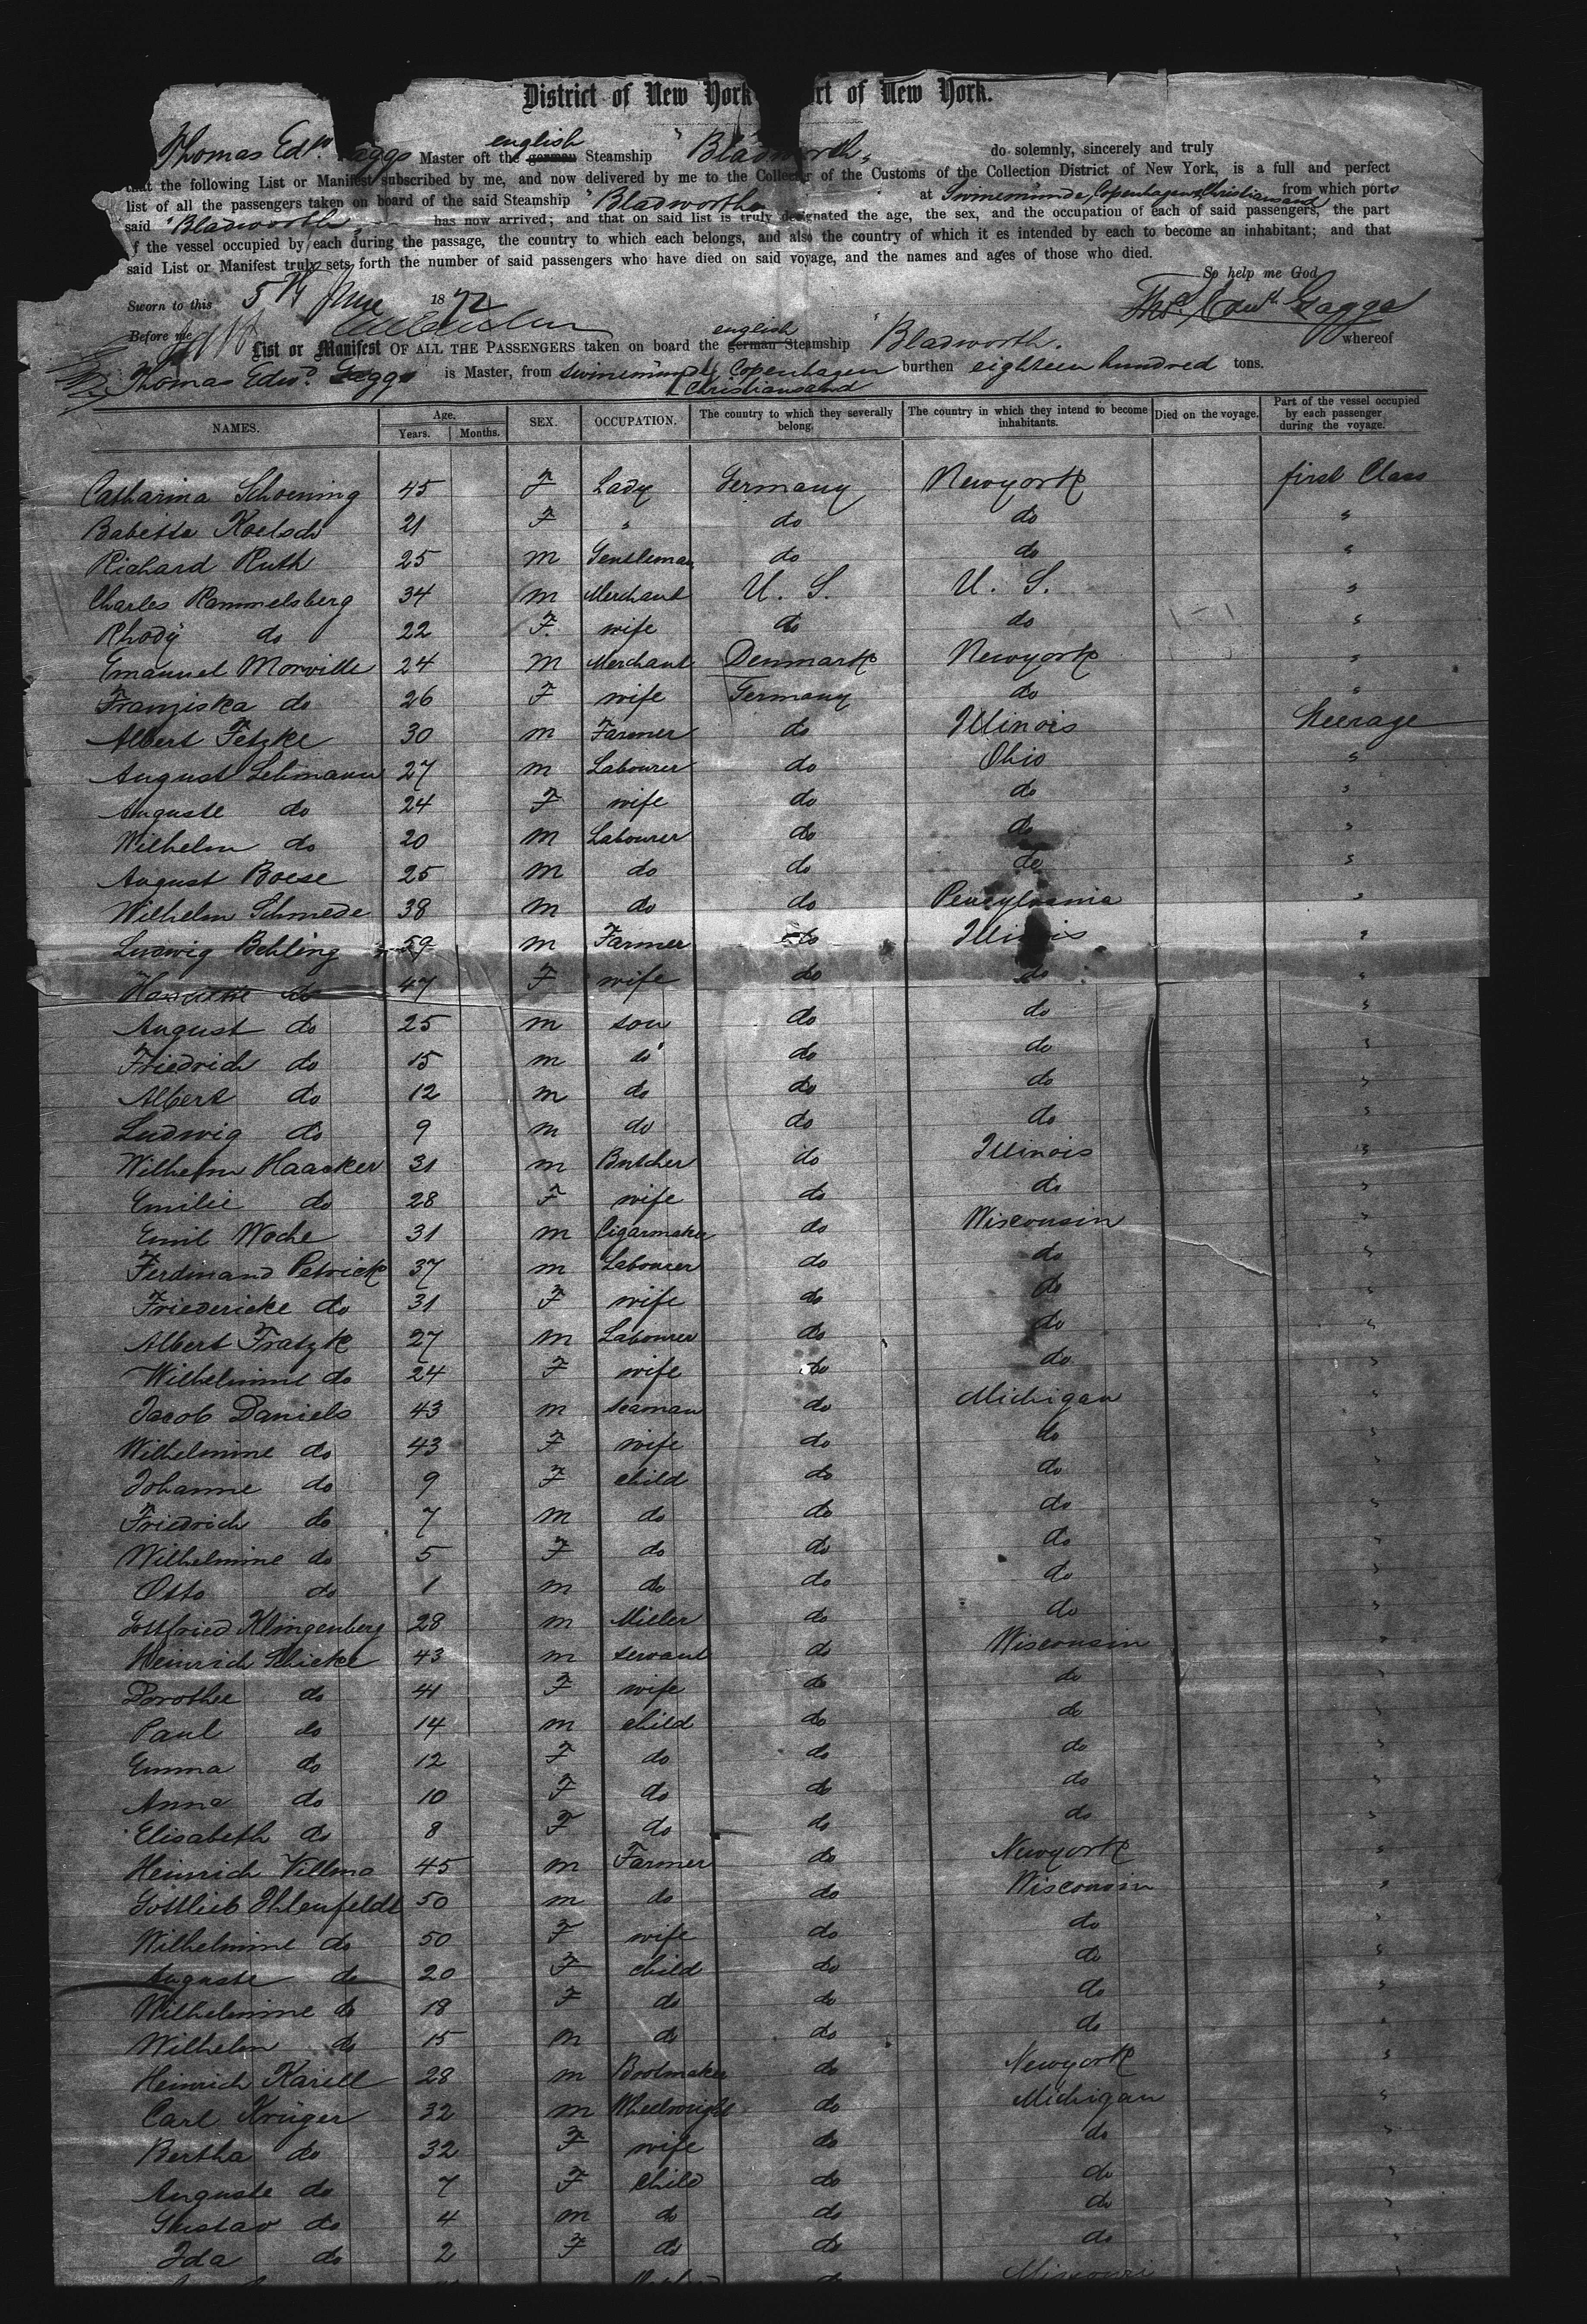 District of New York rt of New York.
Thomas Edw. aggs Master oft the english german Steamship "Bladworth" do solemnly, sincerely and truly
that the following List or Manifest subscribed by me, and now delivered by me to the Collector of the Customs of the Collection District of New York, is a full and perfect
list of all the passengers taken on board of the said Steamship "Bladworth" at Swinemünde, Copenhagen & Christiansand from which ports
said "Bladworth" has now arrived; and that on said list is truly designated the age, the sex, and the occupation of each of said passengers, the part
f the vessel occupied by each during the passage, the country to which each belongs, and also the country of which it es intended by each to become an inhabitant; and that
said List or Manifest truly sets forth the number of said passengers who have died on said voyage, and the names and ages of those who died.
So help me God
Sworn to this 5th June 1872 Thos. Edwth. Gaggs
Before me
List or Manifest OF ALL THE PASSENGERS taken on board the english german Steamship "Bladworth. whereof
Thomas Edwd. Gaggs is Master, from Swinemünde, Copenhagen burthen eighteen hundred tons.
& Christiansand
NAMES. Age. Years. Months. SEX. OCCUPATION. The country to which they severally belong. The country in which they intend to become inhabitants. Died on the voyage. Part of the vessel occupied by each passenger during the voyage.
Catharina Schoening 45 F Lady Germany Newyork first Class
Babetta Koelsch 21 F " do do "
Richard Ruth 25 m Gentleman do do "
Charles Rammelsberg 34 m Merchant U. S. U. S. "
Rhody do 22 F. wife do do "
Emanuel Morville 24 m Merchant Denmark Newyork "
Franziska do 26 F wife Germany do "
Albert Fetzke 30 m Farmer do Illinois Steerage
August Lehmann 27 m Labourer do Ohio "
Auguste do 24 F wife do do "
Wilhelm do 20 m Labourer do do "
August Boese 25 m do do do "
Wilhelm Schmede 38 m do do Pensylvania "
Ludwig Behling 59 m Farmer do Illinois "
Henriette do 47 F wife do do "
August do 25 m son do do "
Friedrich do 15 m do do do "
Albert do 12 m do do do "
Ludwig do 9 m do do do "
Wilhelm Haacker 31 m Butcher do Illinois "
Emilie do 28 F wife do do "
Emil Woche 31 m Cigarmaker do Wisconsin "
Ferdinand Petrick 37 m Labourer do do "
Friedericke do 31 F wife do do "
Albert Fratzk 27 m Labourer do do "
Wilhelmine do 24 F wife do do "
Jacob Daniels 43 m seaman do Michigan "
Wilhelmine do 43 F wife do do "
Johanne do 9 F child do do "
Friedrich do 7 m do do do "
Wilhelmine do 5 F do do do "
Otto do 1 m do do do "
Gottfried Klingenberg 28 m Miller do do "
Heinrich Schicke 43 m servant do Wisconsin "
Dorothee do 41 F wife do do "
Paul do 14 m child do do "
Emma do 12 F do do do "
Anna do 10 F do do do "
Elisabeth do 8 F do do do "
Heinrich Villmo 45 m Farmer do Newyork "
Gottlieb Ihlenfeldt 50 m do do Wisconsin "
Wilhelmine do 50 F wife do do "
Auguste do 20 F child do do "
Wilhelmine do 18 F do do do "
Wilhelm do 15 m do do do "
Heinrich Karell 28 m Bootmaker do Newyork "
Carl Krüger 32 m Wheelwright do Michigan "
Bertha do 32 F wife do do "
Auguste do 7 F child do do "
Gustav do 4 m do do do "
Ida do 2 F do do do "
Missouri